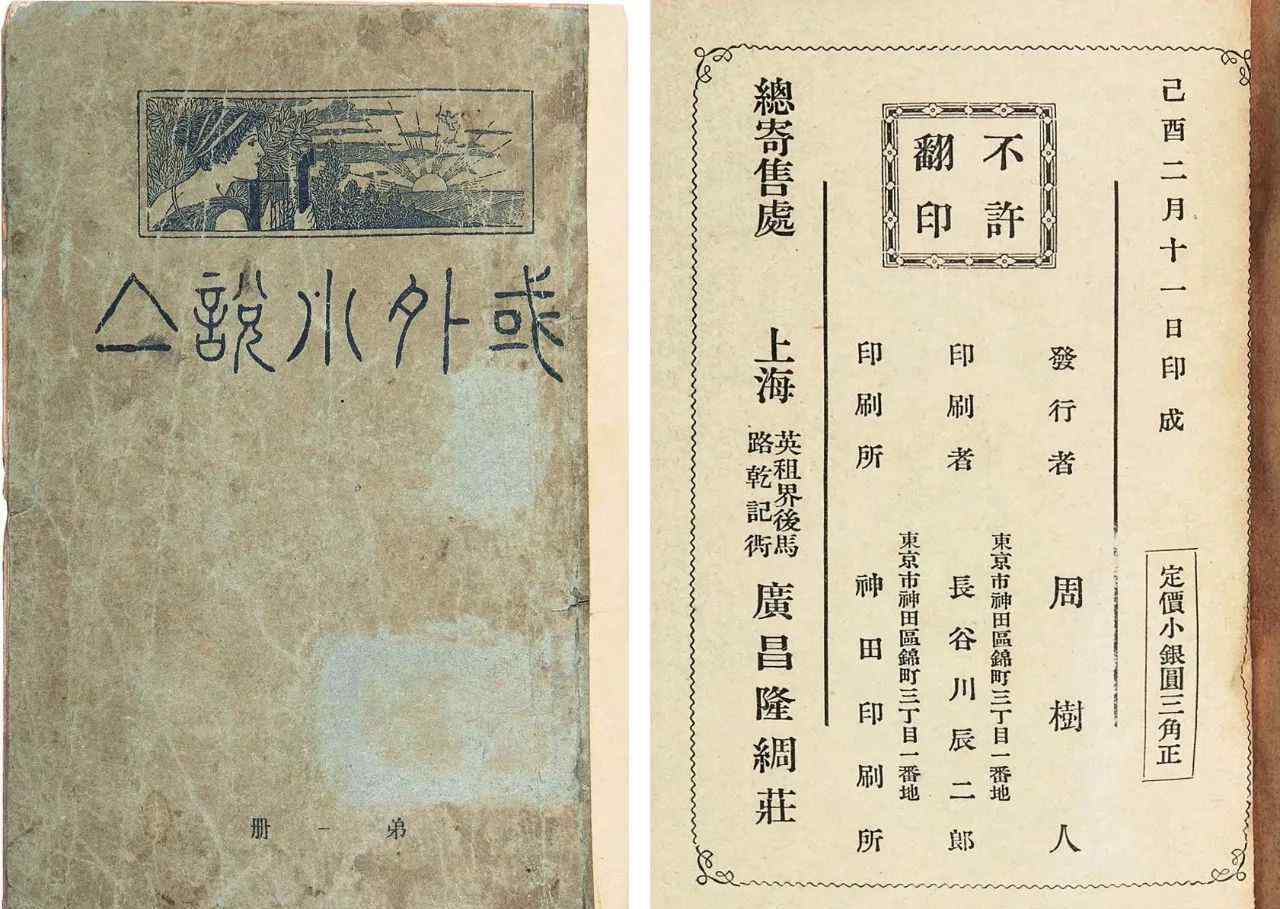 或外小說亼
弟一册
己酉二月十一日印成
定價小銀圓三角正
不許
翻印
發行者 周樹人
東京市神田區錦町三丁目一番地
印刷者 長谷川辰二郎
東京市神田區錦町三丁目一番地
印刷所 神田印刷所
總寄售處 上海 英租界後馬
路乾記衖 廣昌隆綢莊